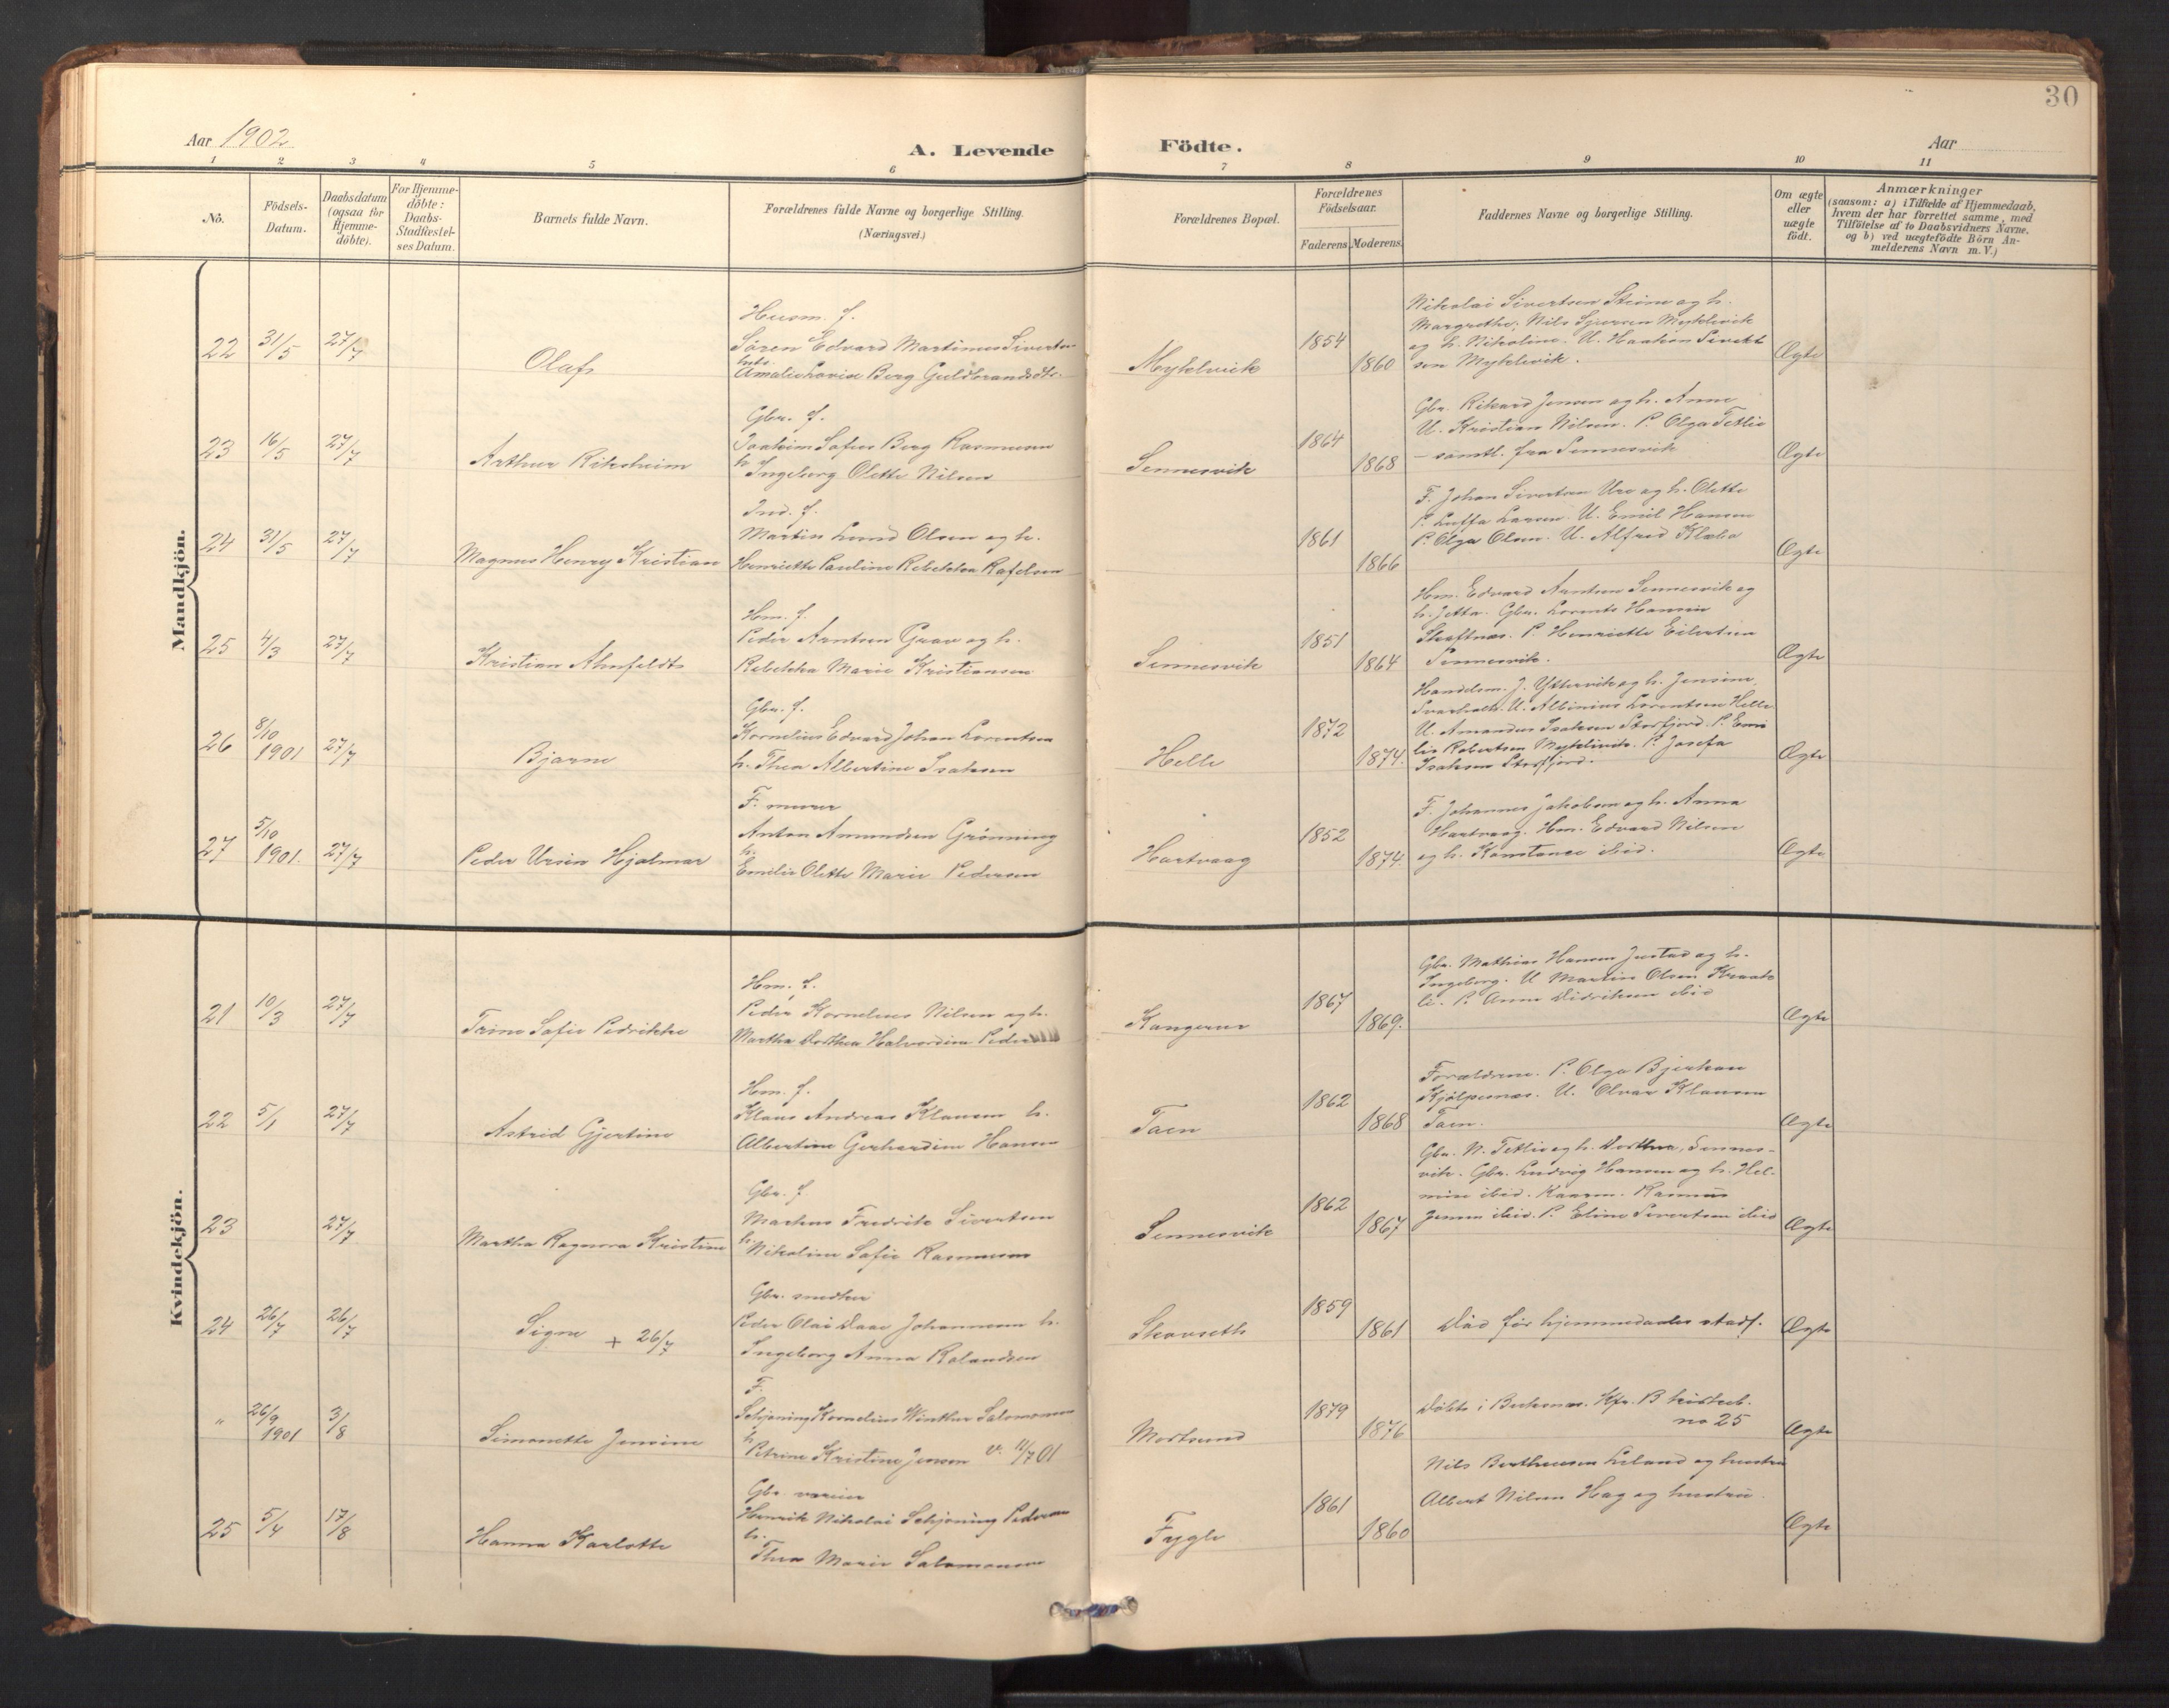 30
Aar 1902
A. Levende
Födte.
Aar
1
2
3
4
5
6
7
8
9
10
11
No.
Födsels-Datum.
Daabsdatum (ogsaa for Hjemme-döbte).
For Hjemme-döbte: Daabs-Stadfæstel-ses Datum.
Barnets fulde Navn.
Forældrenes fulde Navne og borgerlige Stilling.
(Næringsvei.)
Forældrenes Bopæl.
Forældrenes Födselsaar.
Faderens.
Moderens.
Faddernes Navne og borgerlige Stilling.
Om ægte eller uægte födt.
Anmærkninger
(saasom: a) i Tilfælde af Hjemmedaab,
hvem der har forrettet samme, med
Tilföielse af to Daabsvidners Navne,
og b) ved uægtefödte Börn An-
melderens Navn m. V.)
Mandkjön.
22 31/5 27/7
Olaf
Husm. f.
Sören Edvard Martinus Sivertsen
hts.
Amalie Lovise Berg Guldbrandsdtr.
Myklevik
1854
1860
Nikolai Sivertsen Steine og h.
Margrethe; Nils Myklevik
og h. Nikoline. U. Haakon Sivert
sen Myklevik.
Ægte
23 16/5 27/7
Arthur Riksheim
Gbr. f.
Joakim Sofus Berg Rasmussen
h.
Ingeborg Olette Nilsen
Sennesvik
1864
1868
Gbr. Rikard Jensen og h. Anne
U. Kristian Nilsen. P. Olga Tetlie
– samtl. fra Sennesvik
Ægte
24 31/5 27/7
Magnus Henry Kristian
Ind. f.
Martin Lund Olsen og h.
Henriette Pauline Rebekka Rafelsen
1861
1866
F. Johan Sivertsen Ure og h. Olette
P. Luffa Larsen. U. Emil Hansen
P. Olga Olsen. U. Alfred Klæbo
Ægte
25 4/3 27/7
Kristian Ahnfeldt
Hm. f.
Peder Arntsen Grav og h.
Rebekka Marie Kristiansen
Sennesvik
1851
1864
Hm. Edvard Arntsen Sennesvik og
h. Jetta. Gbr. Lorents Hansen
Skaftnes. P. Henriette Eilertsen
Sennesvik.
Ægte
26 8/10 1901 27/7
Bjarne
Gbr. f.
Kornelius Edvard Johan Lorentsen
h. Thea Albertine Isaksen
Helle
1872
1874.
Handelsm. J. Yttervik og h. Jensine
Svarholt. U. Albinius Lorentsen Helle
U. Amandus Isaksen Storfjord. P. Emi
lie Robertsen Myklevik. P. Josefa
Isaksen Storfjord.
Ægte
27 5/10 1901. 27/7
Peder Ursin Hjalmar
F. murer
Anton Amundsen Grönning
h.
Emilie Olette Marie Pedersen
Hartvaag
1852
1874
F. Johannes Jakobsen og h. Anna
Hartvaag. Hm. Edvard Nilsen
og h. Konstance ibid.
Ægte
Kvindekjön.
21 10/3 27/7
Trine Sofie Pedrikke
Hm. f.
Peder Kornelius Nilsen og h.
Martha Dorthea Halvordine Peder
Kangerur
1867
1869.
Gbr. Mathias Hansen Justad og h.
Ingeborg. U Martin Olsen
li. P. Anne Didriksen ibid
Ægte
22 5/1 27/7
Astrid Gjertine
Hm. f.
Klaus Andreas Klausen h.
Albertine Gerhardine Hansen
Taen
1862
1868
Forældrene. P. Olga Bjerkan
Kjölpesnæs. U. Olvar Klausen
Taen.
Ægte
23 27/7
Martha Ragnora Kristine
Gbr. f
Markus Fredrik Sivertsen
h.
Nikoline Sofie Rasmussen
Sennesvik
1862
1867
Gbr. N. Tetlie og h. Dorthea, Sennes-
vik. Gbr. Ludvig Hansen og h. Hel-
mine ibid. Rasmus
Jensen ibid. P. Eline Sivertsen ibid
Ægte
24 26/7 26/7
Signe + 26/7
Gbr. snedker
Peder Olai Daae Johannesen h.
Ingeborg Anna Rolandsen
Skarseth
1859
1861
Död för hjemmedaabs stadf.
Ægte
" 26/9 1901 3/8
Simonette Jensine
F.
Schjøning Kornelius Winther Salomonsen
h.
Petrine Kristine Jensen v. 11/7 01
Mortsund
1879
1876
Döbt i Buksnes. Kfr. B kirkeb.
no 25
Ægte
25 5/4 17/8
Hanna Karlotte
Gbr.
Henrik Nikolai Schjøning Pedersen
h.
Thea Marie Salomonsen
Fygle
1861
1860
Nils Bertheussen Leland og hustru
Albert Nilsen Hag og hustru.
Ægte